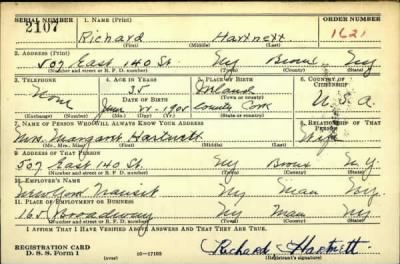 SERIAL NUMBER 1. NAME (Print) ORDER NUMBER
2107 Richard Hartnett 1621
(First) (Middle) (Last)
2. ADDRESS (Print)
507 East 140 St. Ny Bronx Ny
(Number and street or R. F. D. number) (Town) (County) (State)
3. TELEPHONE 4. AGE IN YEARS 5. PLACE OF BIRTH 6. COUNTRY OF CITIZENSHIP
None 35 Ireland
DATE OF BIRTH (Town or county)
1905 County Cork U.S.A.
(Exchange) (Number) (Mo.) (Day) (Yr.) (State or country)
7. NAME OF PERSON WHO WILL ALWAYS KNOW YOUR ADDRESS 8. RELATIONSHIP OF THAT PERSON
Mrs. Margaret Hartnett Wife
(Mr., Mrs., Miss) (First) (Middle) (Last)
9. ADDRESS OF THAT PERSON
507 East 140 St. Ny Bronx N.Y.
(Number and street or R. F. D. number) (Town) (County) (State)
10. EMPLOYER'S NAME
Transit Ny Man Ny
11. PLACE OF EMPLOYMENT OR BUSINESS
165 Broadway Ny Man Ny
(Number and street or R. F. D. number) (Town) (County) (State)
I AFFIRM THAT I HAVE VERIFIED ABOVE ANSWERS AND THAT THEY ARE TRUE.
REGISTRATION CARD
D. S. S. Form 1 (over) 16—17105 Richard Hartnett
(Registrant's signature)